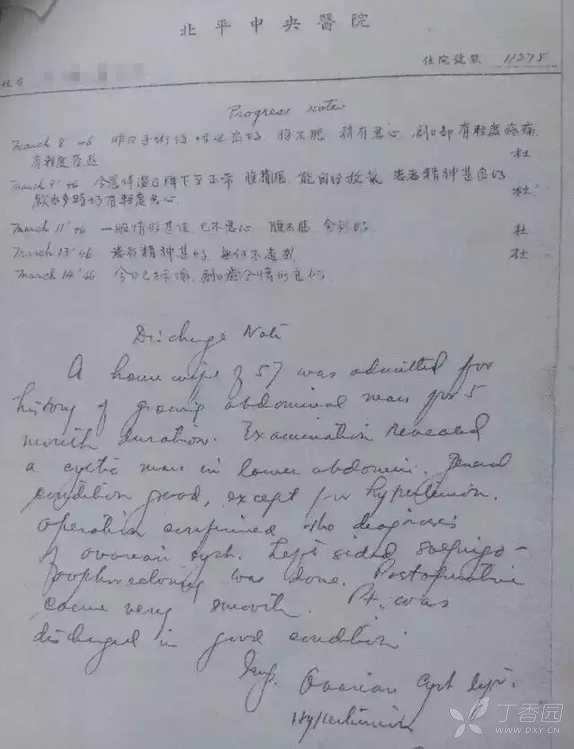 北平中央醫院
住院號數 11275
姓名
Progress Note
March 8 '46 昨日手術後情況良好, 腹不脹, 稍有惡心, 創口部有輕度疼痛,
有輕度 杜
March 9 '46 今晨体溫已降下至正常, 腹稍脹, 能自行放氣, 患者精神甚良好
飲水多時仍有輕度惡心. 杜
March 11 '46 一般情形甚佳, 已不惡心, 腹不脹, 杜
March 13 '46 患者精神甚好, 無何不適感 杜
March 14 '46 今日已拆線, 創口癒合情形良好.
Discharge Note
A house wife of 57 was admitted for
history of growing abdominal mass for 5
month duration. Examination revealed
a cystic mass in lower abdomen. General
condition good, except for hypertension.
Operation confirmed the diagnosis
of ovarian cyst. Left sided salpingo-
oophorectomy was done. Postoperative
course very smooth. Pt. was
discharged in good condition
Imp. Ovarian Cyst left.
Hypertension
丁香园
WWW.DXY.CN